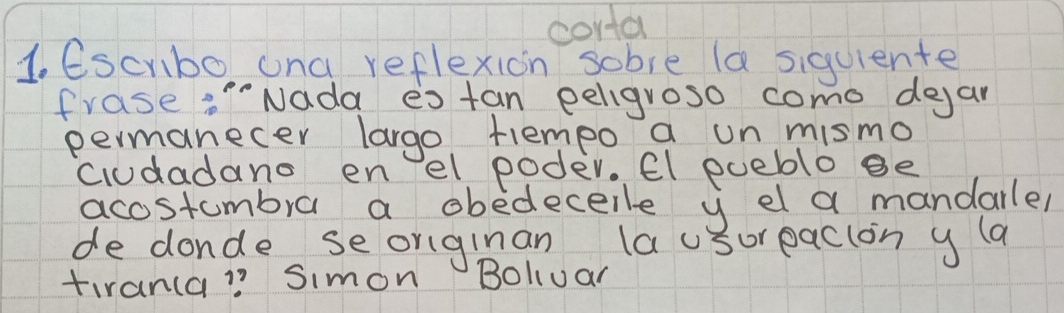 corta
1. Escribo una reflexión sobre la siguiente
frase: "Nada es tan peligroso como dejar
permanecer largo tiempo a un mismo
ciudadano en el poder. El pueblo se
acostumbra a obedecerle y el a mandarle,
de donde se originan la usurpación y la
tirania" Simon Bolivar